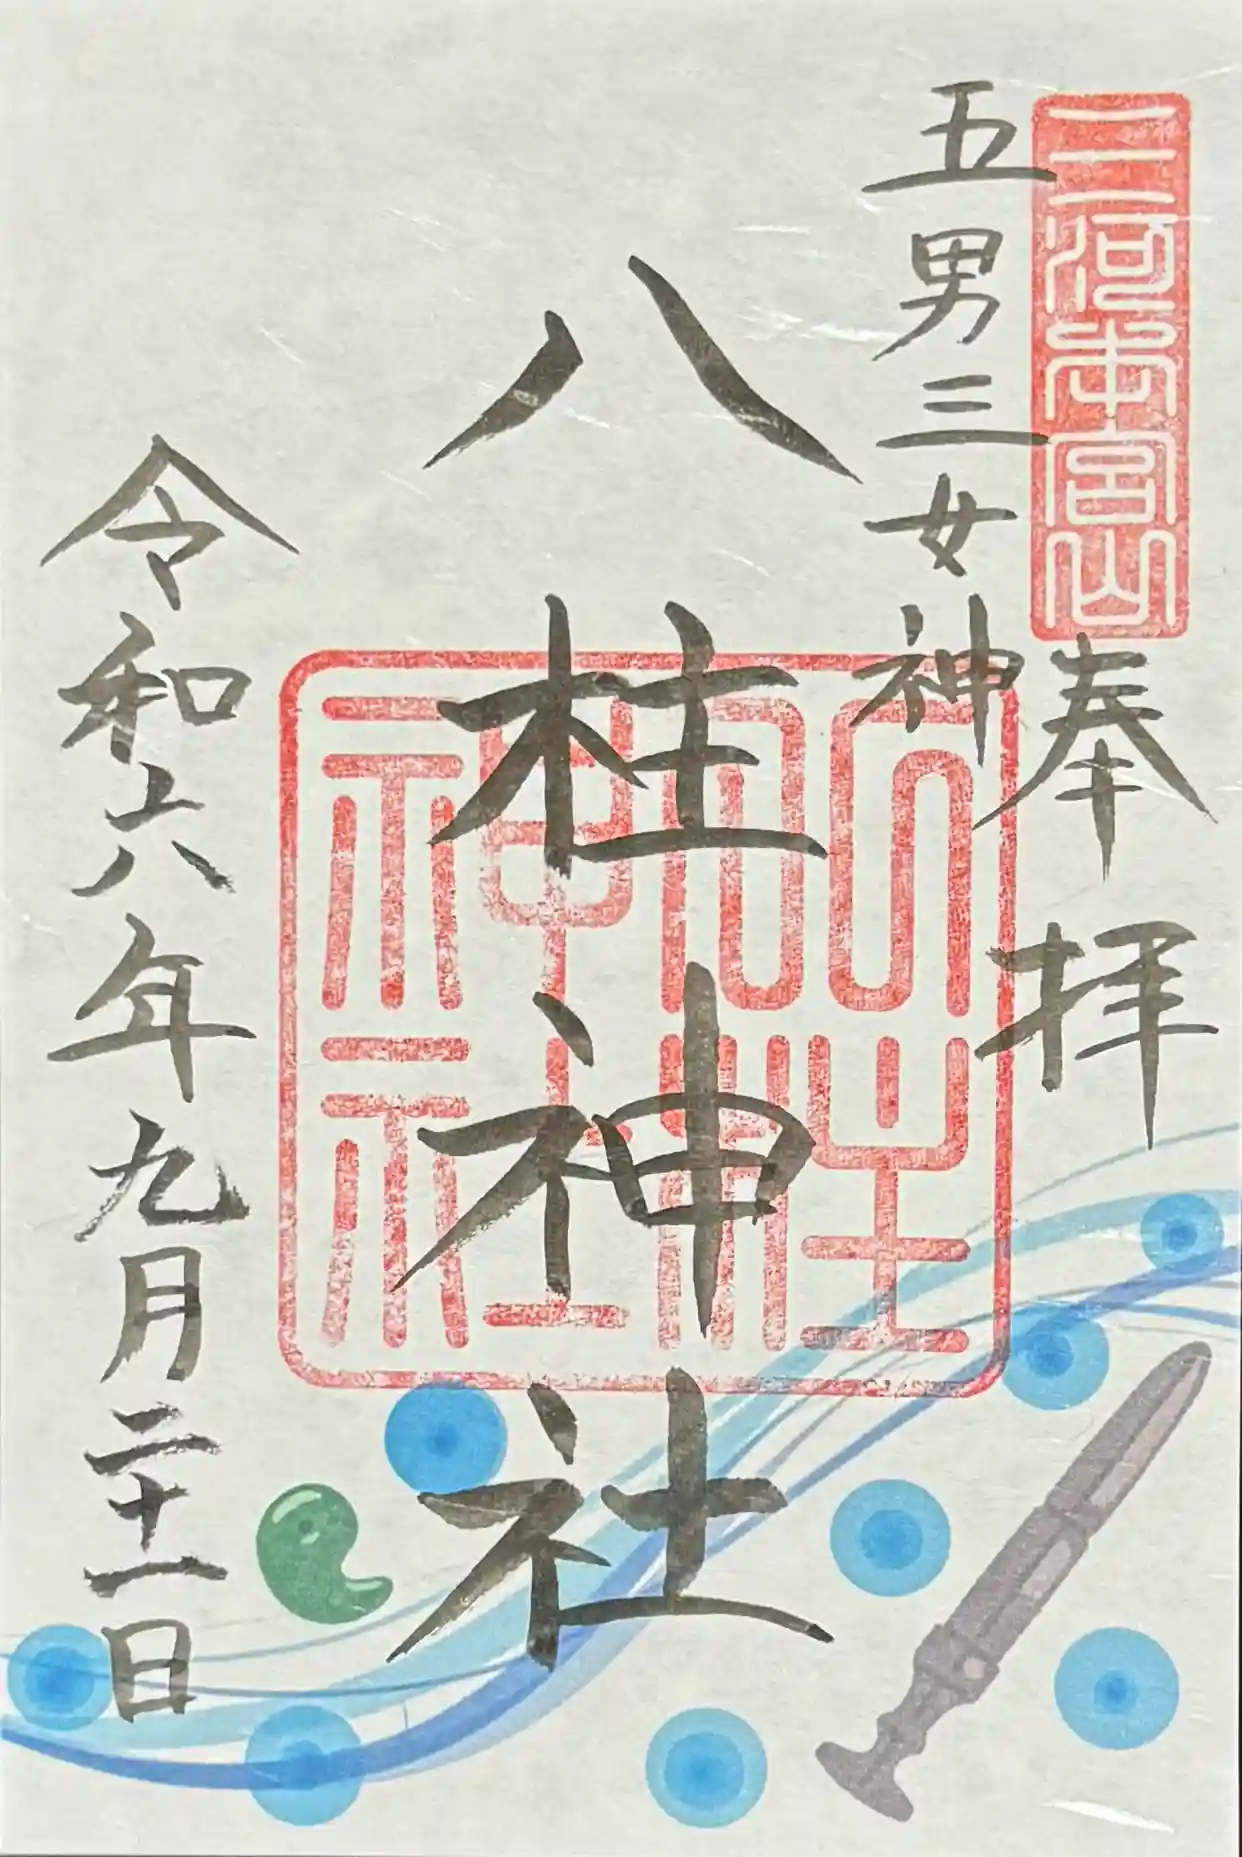 三河本宮山
奉拝
五男三女神
八柱神社
八柱神社
令和六年九月二十一日